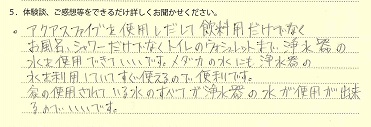 5．体験談、ご感想等をできるだけ詳しくお聞かせください。
・アクアスファイブを使用しだして飲料用だけでなく
お風呂、シャワーだけでなくトイレのウォシュレットまで浄水器の
水を使用できていいです。メダカの水にも浄水器の
水を利用していてすぐ使えるので便利です。
家の使用されている水のすべてが浄水器の水が使用が出来
るのでいいです。